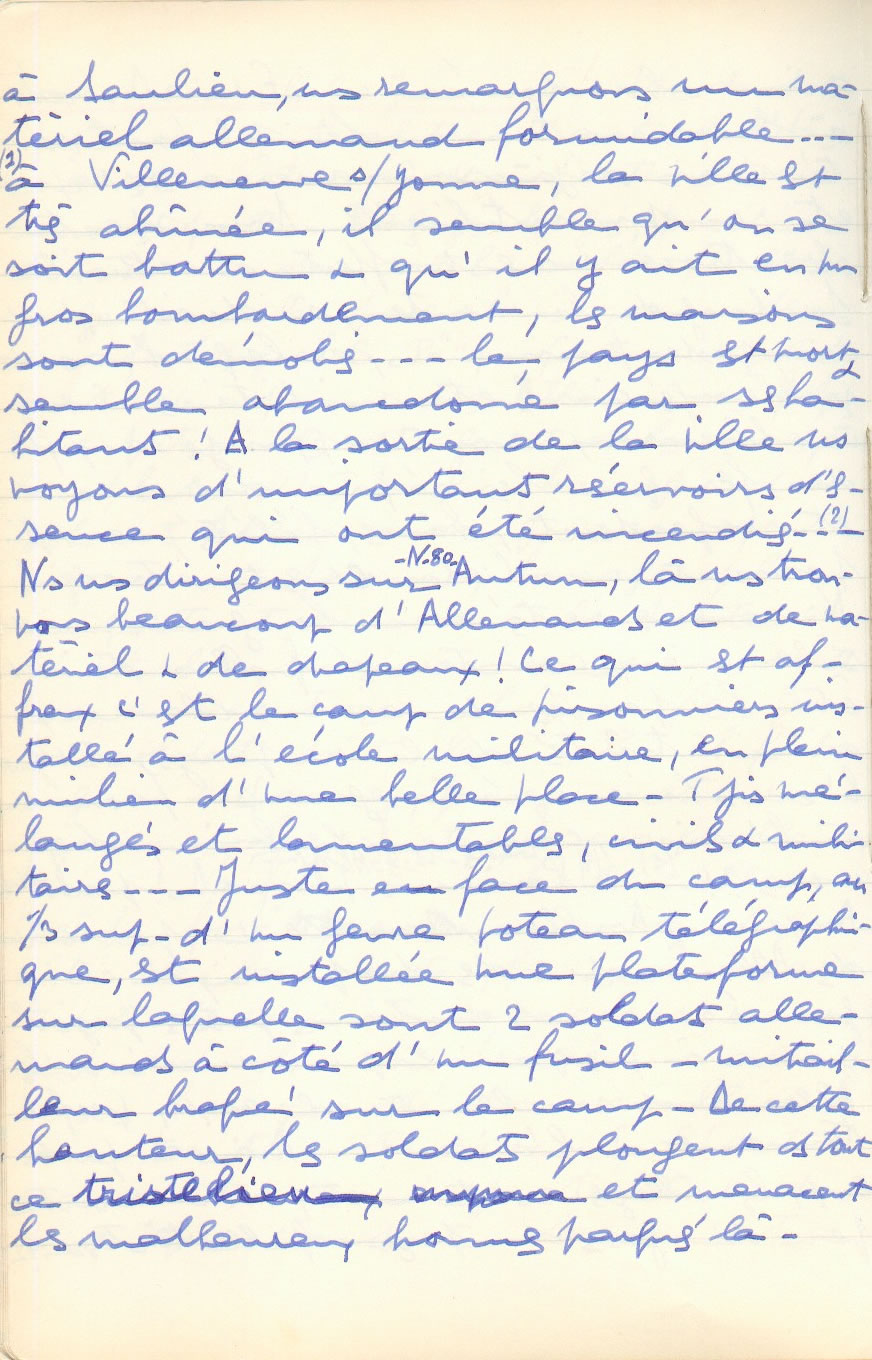 à Saulieu, ns remarquons un ma-
tériel allemand formidable ---
(1) à Villeneuve s/Yonne, la ville est
très abîmée, il semble qu'on se
soit battu & qu'il y ait eu un
gros bombardement, les maisons
sont démolies --- le pays est mort &
semble abandonné par ses ha-
bitants ! A la sortie de la ville ns
voyons d'importants réservoirs d'es-
sence qui ont été incendiés --- (2)
Ns ns dirigeons sur -N.80- Autun, là ns trou-
vons beaucoup d'Allemands et de ma-
tériel & de drapeaux ! Ce qui est af-
freux c'est le camp de prisonniers ins-
tallé à l'école militaire, en plein
milieu d'une belle place - Types mé-
langés et lamentables, civils & mili-
taires --- Juste en face du camp, au
1/3 sup. d'un genre poteau télégraphi-
que, est installée une plateforme
sur laquelle sont 2 soldats alle-
mands à côté d'un fusil - mitrail-
leur braqué sur le camp - De cette
hauteur, les soldats plongent ds tout
ce triste lieu et menacent
les malheureux hommes parqués là -